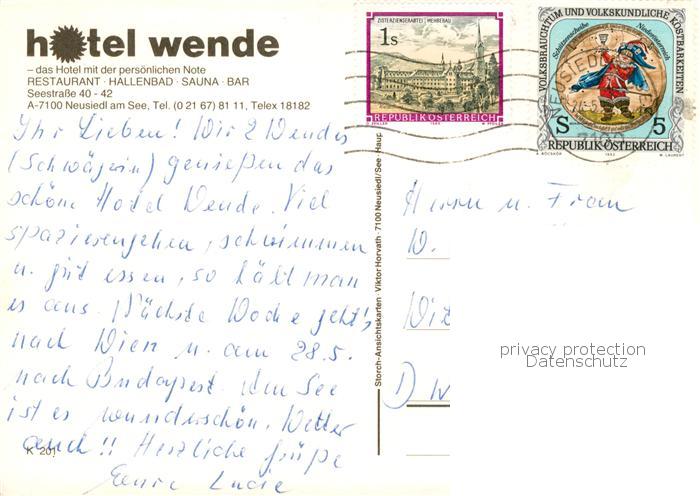 hotel wende
– das Hotel mit der persönlichen Note
RESTAURANT · HALLENBAD · SAUNA · BAR
Seestraße 40 - 42
A-7100 Neusiedl am See, Tel. (0 21 67) 81 11, Telex 18182
Ihr Lieben! Wir 2 Wendes
(Schwägerin) genießen das
schöne Hotel Wende. Viel
spazierengehen, schwimmen
u. gut essen, so hält man
es aus. Nächste Woche geht's
nach Wien u. am 28.5.
nach Budapest. Am See
ist es wunderschön. Wetter
auch!! Herzliche Grüße
Eure Lucie
K 201
Storch-Ansichtskarten Viktor Horvath · 7100 Neusiedl/See · Haup
ZISTERZIENSERABTEI MEHRERAU
1 S
REPUBLIK ÖSTERREICH
1985
VOLKSBRAUCHTUM UND VOLKSKUNDLICHE KOSTBARKEITEN
Schützenscheibe
Niederösterreich
NEUSIEDL
S 5
REPUBLIK ÖSTERREICH
Herrn u. Frau
W.
Wit
D W
privacy protection
Datenschutz